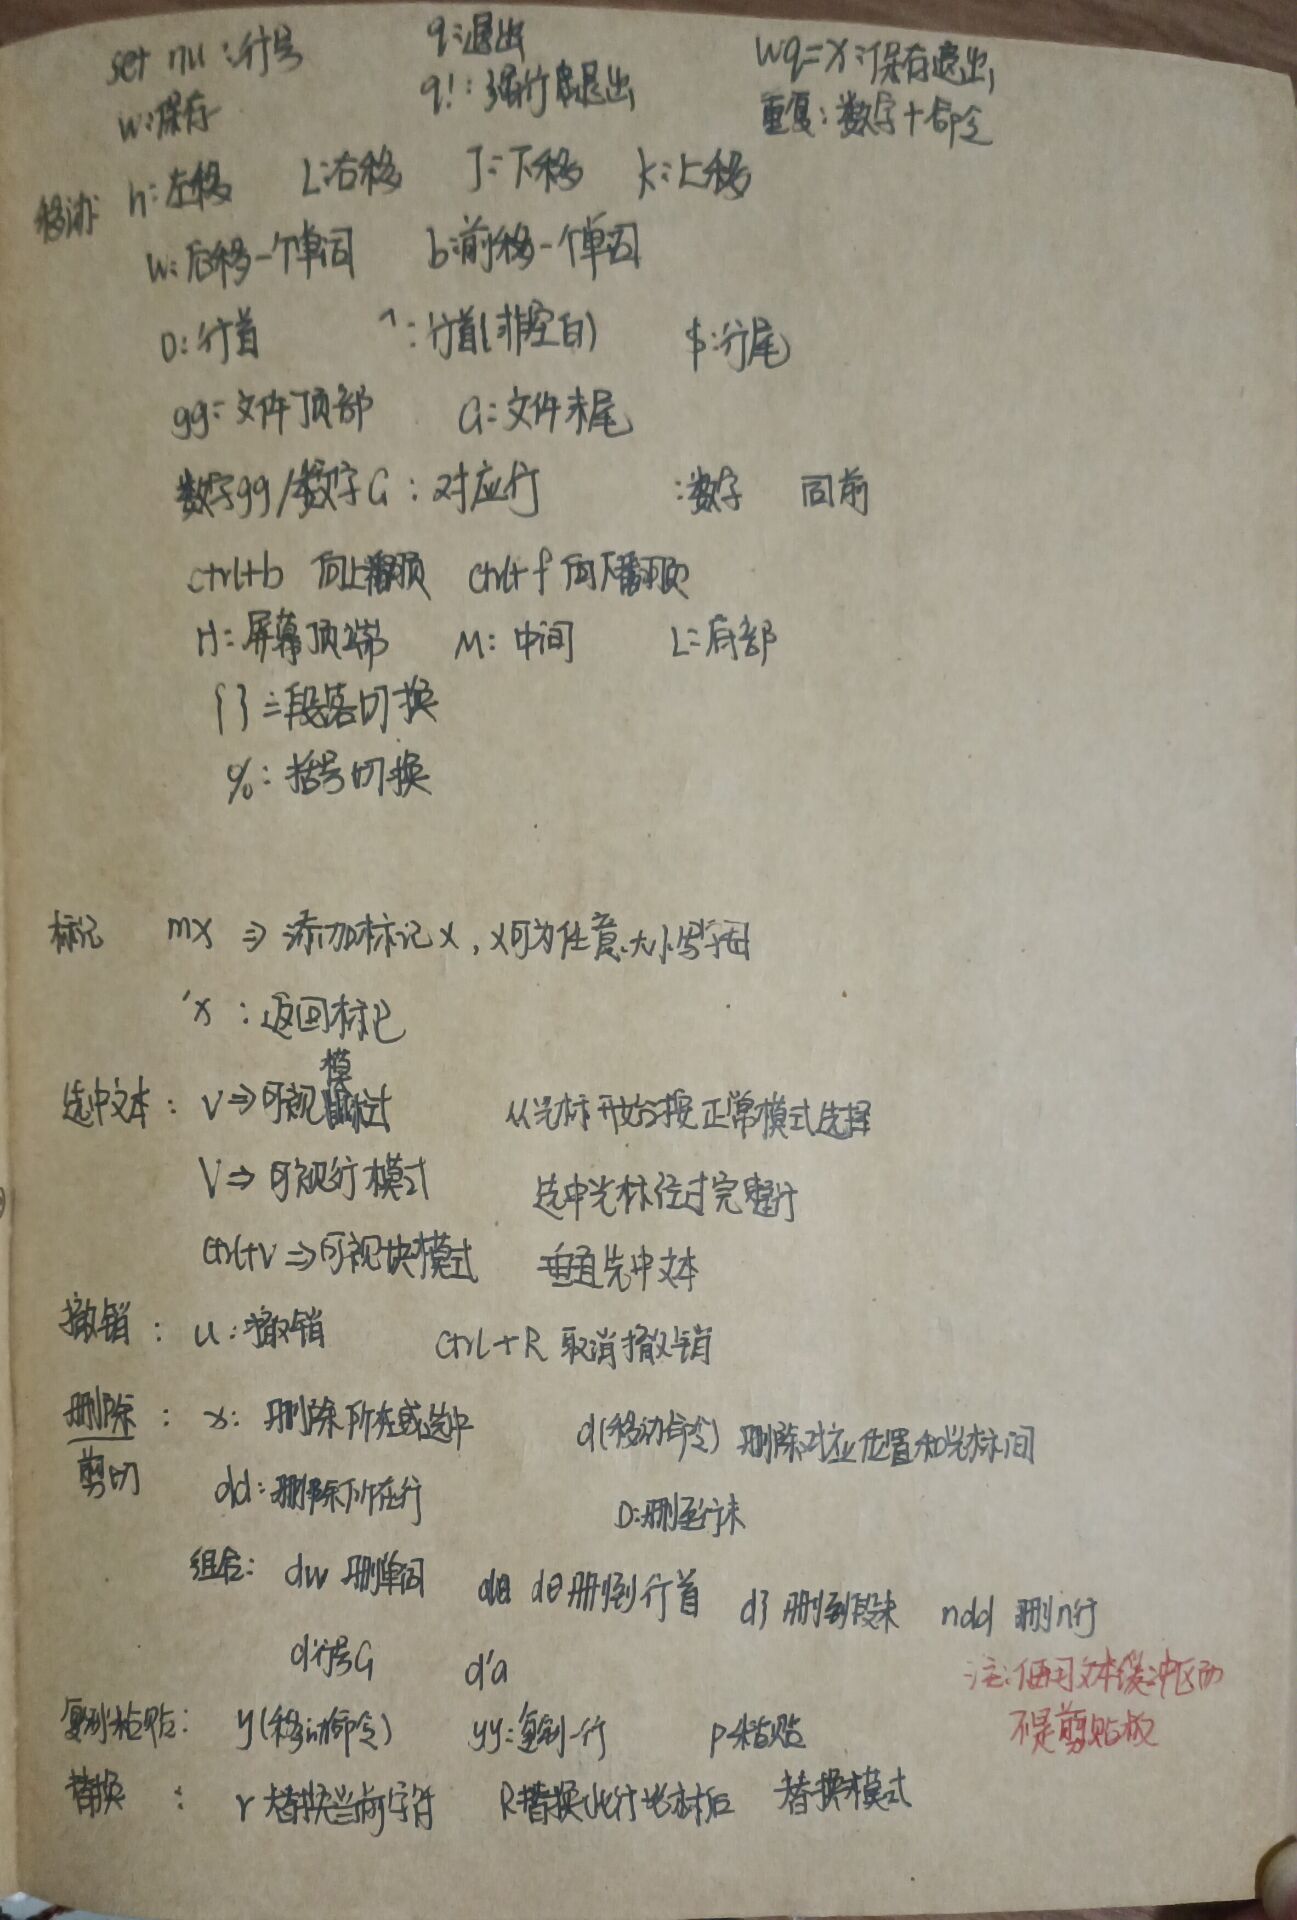 set nu：行号 q：退出 wq=x：保存退出
w：保存 q!：强行退出 重复：数字+命令
移动：h：左移 L：右移 J：下移 k：上移
w：后移一个单词 b：前移一个单词
0：行首 ^：行首(非空白) $：行尾
gg：文件顶部 G：文件末尾
数字gg/数字G：对应行 :数字 同前
ctrl+b 向上翻页 ctrl+f 向下翻页
H：屏幕顶端 M：中间 L：底部
{ }：段落切换
%：括号切换
标记 mx ⇒ 添加标记x，x可为任意大小写字母
'x：返回标记
选中文本：v⇒可视模式 从光标开始按正常模式选择
V⇒可视行模式 选中光标经过完整行
Ctrl+v⇒可视块模式 垂直选中文本
撤销：u：撤销 Ctrl+R 取消撤销
删除：x：删除所在或选中 d(移动命令) 删除对应位置和光标间
剪切 dd：删除所在行 D：删至行末
组合：dw 删单词 d0删到行首 d} 删到段末 ndd 删n行
d行号G d'a 注：使用文本缓冲区而
不是剪贴板
复制粘贴：y(移动命令) yy：复制一行 p粘贴
替换：r 替换当前字符 R替换此行光标后 替换模式